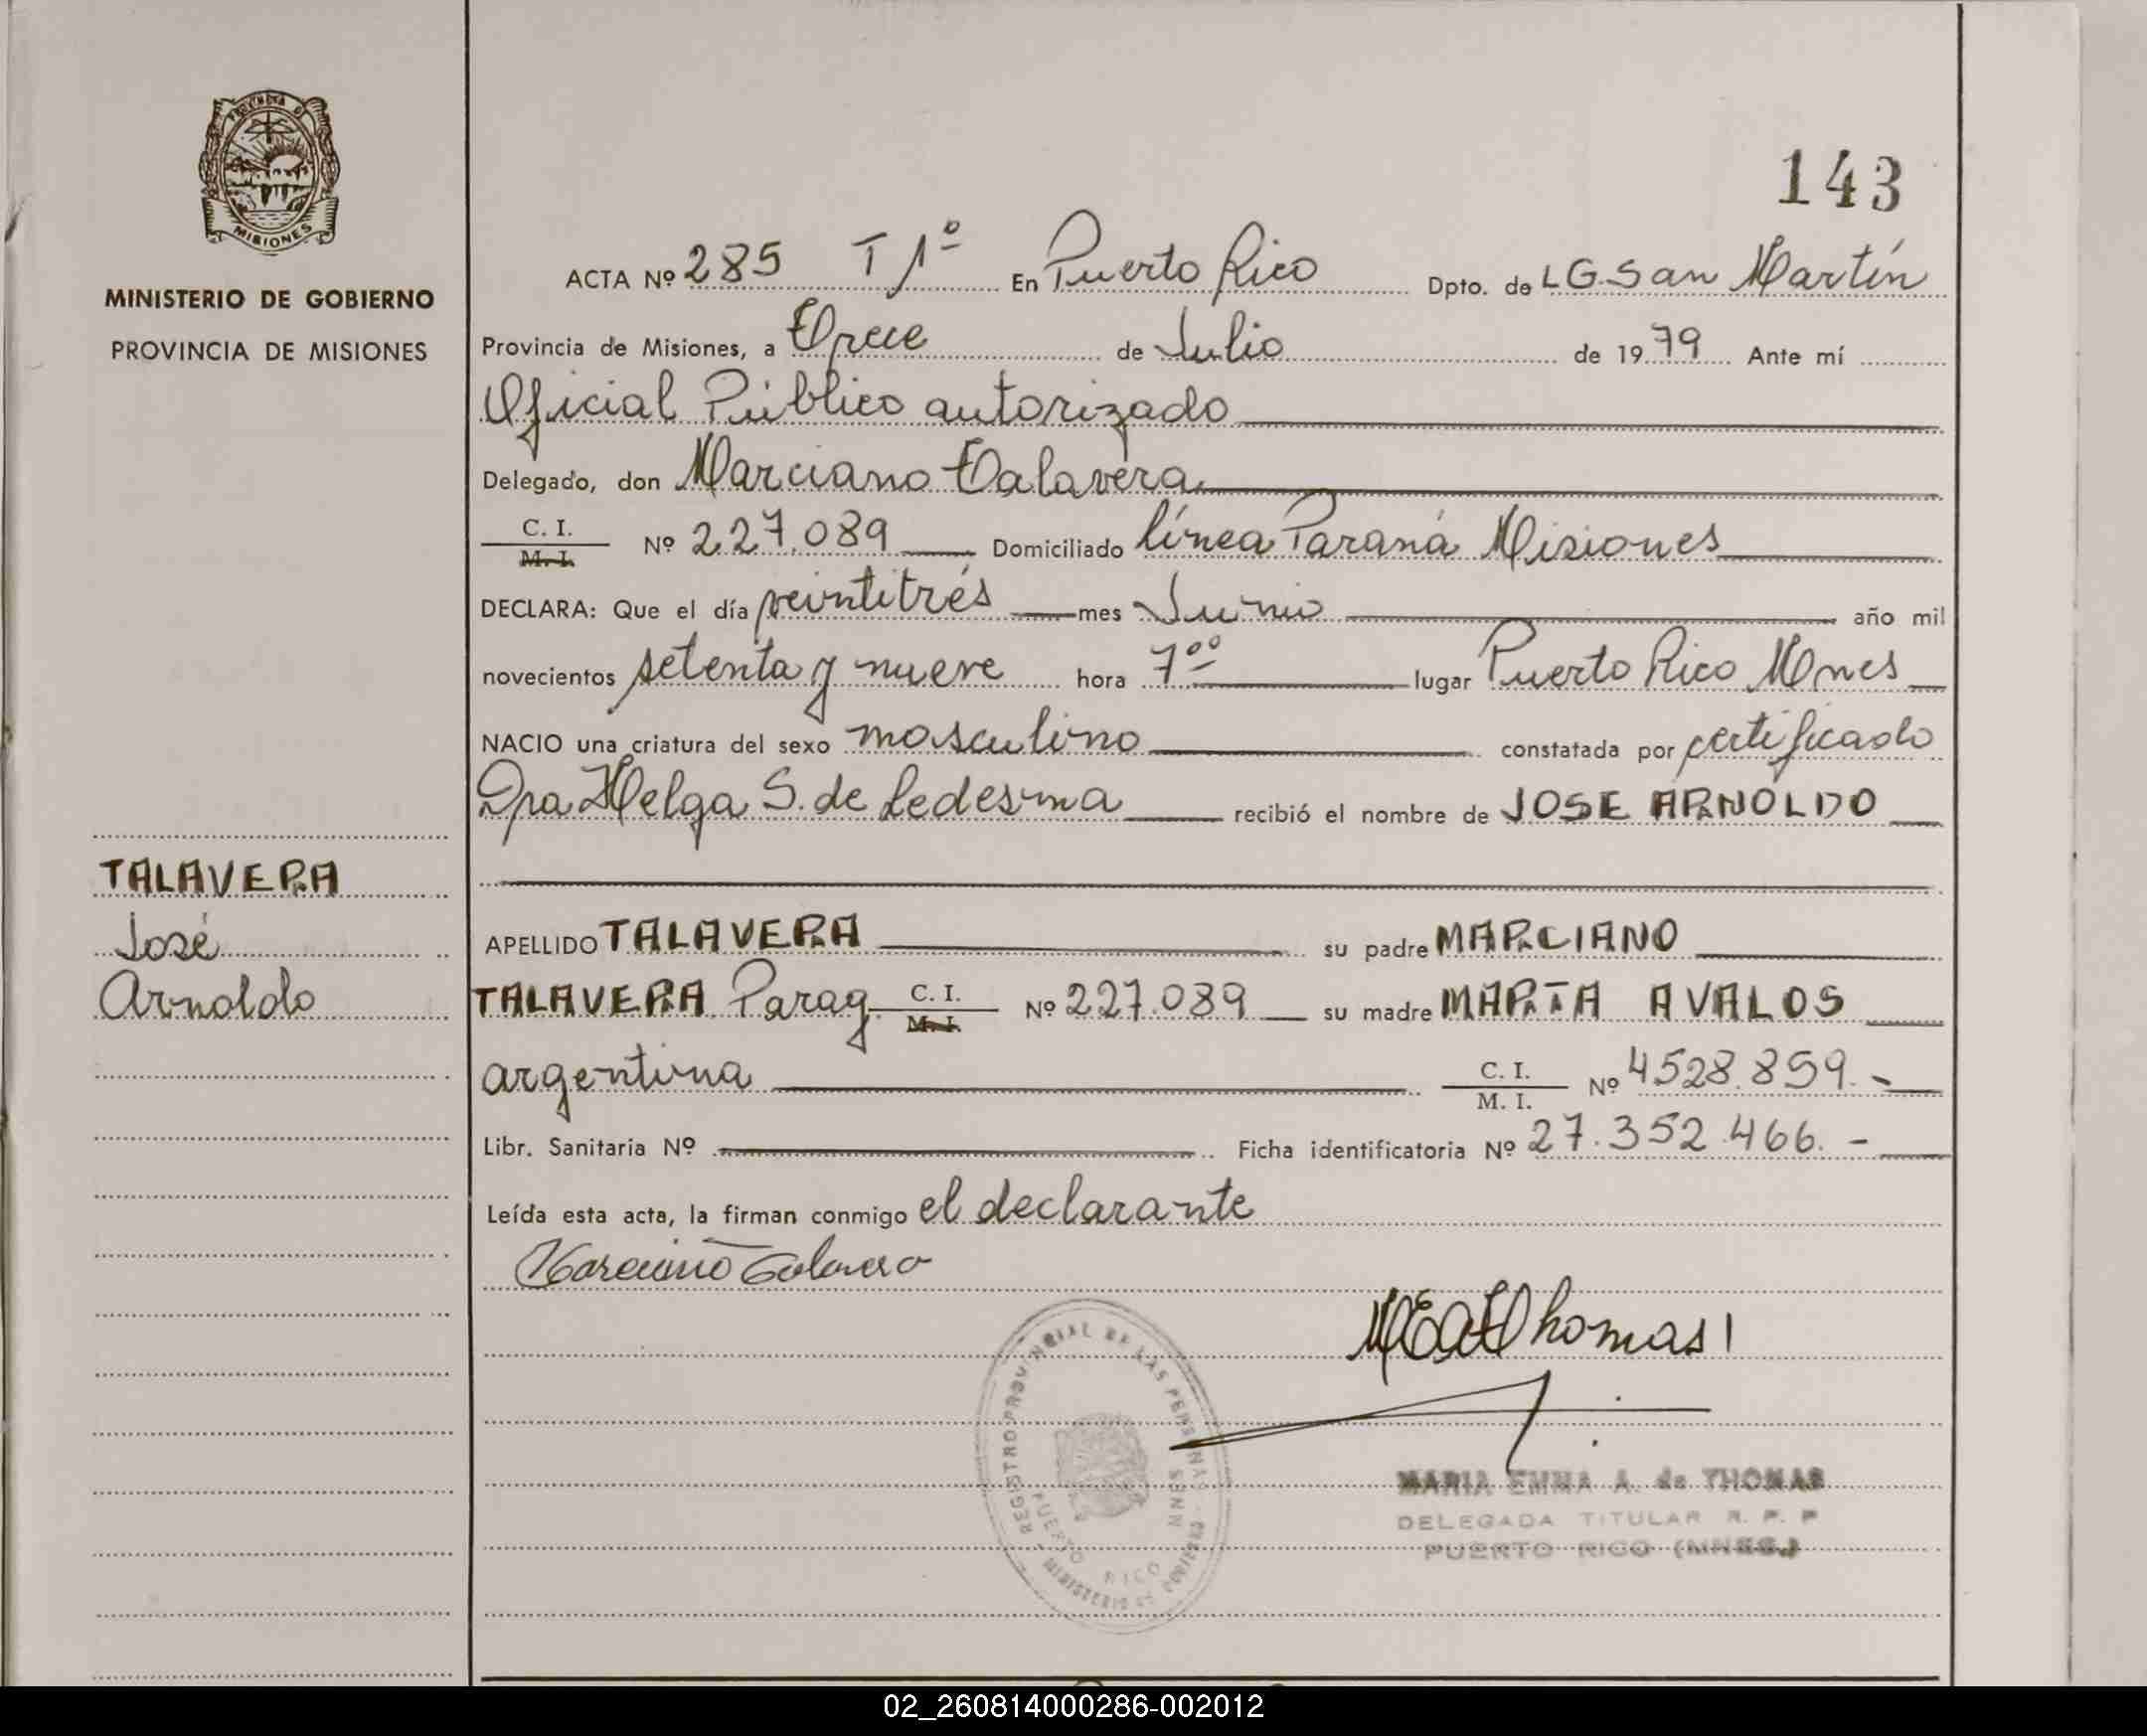 PROVINCIA DE
MISIONES
MINISTERIO DE GOBIERNO
PROVINCIA DE MISIONES
TALAVERA
José
Arnoldo
143
ACTA Nº 285 T 1º En Puerto Rico Dpto. de LG San Martín
Provincia de Misiones, a Trece de Julio de 1979 Ante mí
Oficial Público autorizado
Delegado, don Marciano Talavera
C. I.
M. I. Nº 227.089 Domiciliado línea Paraná Misiones
DECLARA: Que el día veintitrés mes Junio año mil
novecientos setenta y nueve hora 7ºº lugar Puerto Rico Mnes
NACIO una criatura del sexo masculino constatada por certificado
Dra Helga S. de Ledesma recibió el nombre de JOSE ARNOLDO
APELLIDO TALAVERA su padre MARCIANO
TALAVERA Parag. C. I. Nº 227.089 su madre MARTA AVALOS
M. I.
argentina C. I. Nº 4528.859.-
M. I.
Libr. Sanitaria Nº Ficha identificatoria Nº 27.352.466.-
Leída esta acta, la firman conmigo el declarante
Marciano Talavera
MEA de Thomas
REGISTRO PROVINCIAL DE LAS PERSONAS
PUERTO RICO MNES
MINISTERIO DE GOBIERNO
MARIA EMMA A. de THOMAS
DELEGADA TITULAR R. P. P
PUERTO RICO (MNES.)
02_260814000286-002012